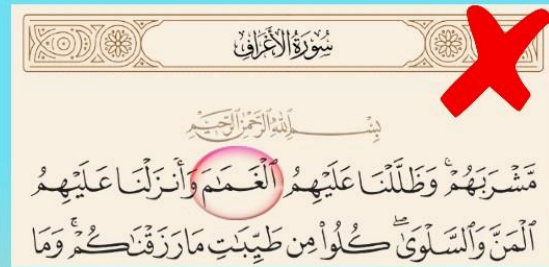 سُورَةُ الأَعْرَافِ
بِسْمِ اللَّهِ الرَّحْمَٰنِ الرَّحِيمِ
مَّشْرَبَهُمْ ۚ وَظَلَّلْنَا عَلَيْهِمُ ٱلْغَمَـٰمَ وَأَنزَلْنَا عَلَيْهِمُ
ٱلْمَنَّ وَٱلسَّلْوَىٰ ۖ كُلُوا۟ مِن طَيِّبَـٰتِ مَا رَزَقْنَـٰكُمْ ۚ وَمَا